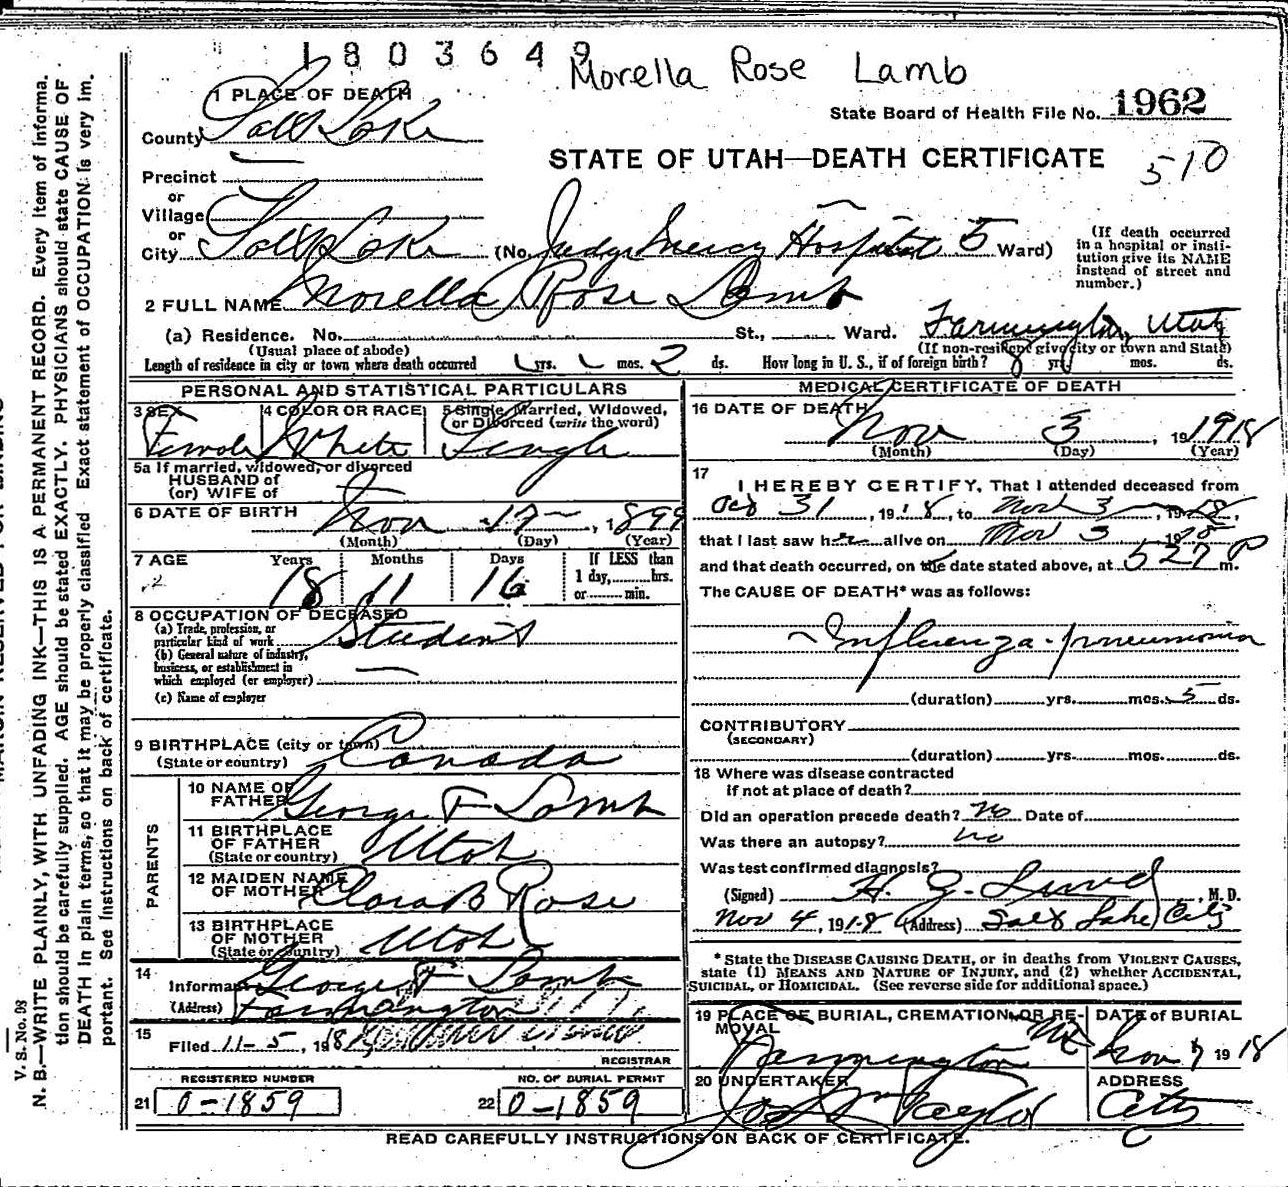 1803649
Morella Rose Lamb
State Board of Health File No. 1962
STATE OF UTAH—DEATH CERTIFICATE
510
1 PLACE OF DEATH
County Salt Lake
Precinct
or
Village
or
City Salt Lake (No. Judge Mercy Hospital 5 Ward)
(If death occurred
in a hospital or insti-
tution give its NAME
instead of street and
number.)
2 FULL NAME Morella Rose Lamb
(a) Residence. No. St., Ward. Farmington, Utah
(Usual place of abode) (If non-resident give city or town and State)
Length of residence in city or town where death occurred yrs. mos. 2 ds. How long in U. S., if of foreign birth? yrs. mos. ds.
PERSONAL AND STATISTICAL PARTICULARS
3 SEX Female
4 COLOR OR RACE White
5 Single, Married, Widowed,
or Divorced (write the word) Single
5a If married, widowed, or divorced
HUSBAND of
(or) WIFE of
6 DATE OF BIRTH Nov 17 1899
(Month) (Day) (Year)
7 AGE Years 18 Months 11 Days 16
If LESS than
1 day, hrs.
or min.
8 OCCUPATION OF DECEASED
(a) Trade, profession, or
particular kind of work Student
(b) General nature of industry,
business, or establishment in
which employed (or employer)
(c) Name of employer
9 BIRTHPLACE (city or town)
(State or country) Canada
PARENTS
10 NAME OF
FATHER George F Lamb
11 BIRTHPLACE
OF FATHER
(State or country) Utah
12 MAIDEN NAME
OF MOTHER Clara B Rose
13 BIRTHPLACE
OF MOTHER
(State or country) Utah
14
Informant George F Lamb
(Address) Farmington
15
Filed 11-5, 1918
REGISTRAR
REGISTERED NUMBER
21 0-1859
NO. OF BURIAL PERMIT
22 0-1859
MEDICAL CERTIFICATE OF DEATH
16 DATE OF DEATH
Nov 3, 191918
(Month) (Day) (Year)
17
I HEREBY CERTIFY, That I attended deceased from
Oct 31, 1918, to Nov 3, 1918,
that I last saw her alive on Nov 3 19
and that death occurred, on the date stated above, at 527 P m.
The CAUSE OF DEATH* was as follows:
Influenza-pneumonia
(duration) yrs. mos. 5 ds.
CONTRIBUTORY
(SECONDARY)
(duration) yrs. mos. ds.
18 Where was disease contracted
if not at place of death?
Did an operation precede death? No Date of
Was there an autopsy? no
Was test confirmed diagnosis?
(Signed) H. G. Lund, M. D.
Nov 4, 1918 (Address) Salt Lake City
* State the DISEASE CAUSING DEATH, or in deaths from VIOLENT CAUSES,
state (1) MEANS AND NATURE OF INJURY, and (2) whether ACCIDENTAL,
SUICIDAL, or HOMICIDAL. (See reverse side for additional space.)
19 PLACE OF BURIAL, CREMATION, OR RE-
MOVAL
Farmington Ut
DATE of BURIAL
Nov 7 1918
20 UNDERTAKER
Jos Wm Taylor
ADDRESS
City
READ CAREFULLY INSTRUCTIONS ON BACK OF CERTIFICATE.
V. S. No. 98
N. B.—WRITE PLAINLY, WITH UNFADING INK—THIS IS A PERMANENT RECORD. Every item of informa-
tion should be carefully supplied. AGE should be stated EXACTLY. PHYSICIANS should state CAUSE OF
DEATH in plain terms, so that it may be properly classified. Exact statement of OCCUPATION is very im-
portant. See instructions on back of certificate.